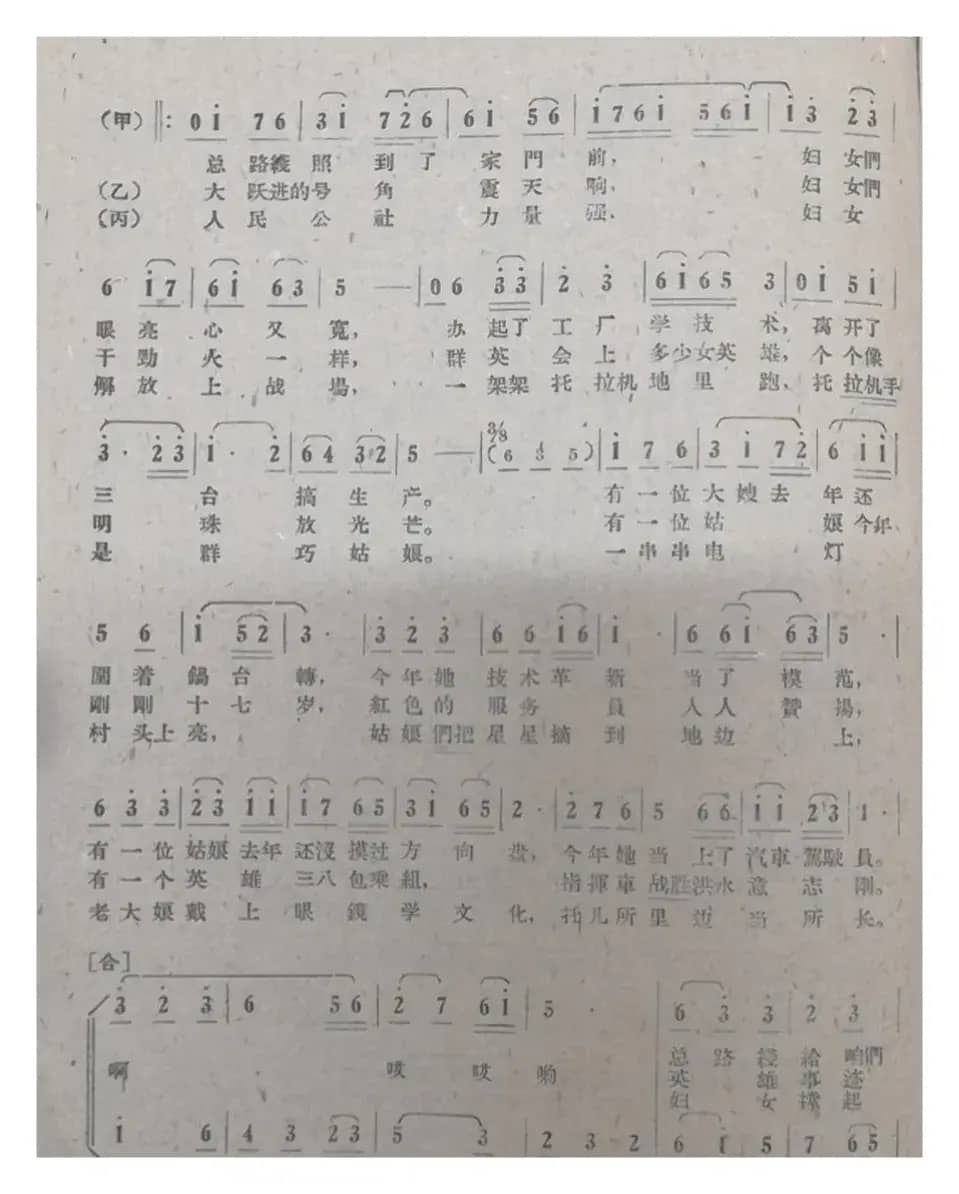 (甲) ‖: 0 i 7 6 | 3 i 7 2 6 | 6 i 5 6 | i 7 6 i 5 6 i | i 3 2 3 |
总路綫照到了家門前, 妇女們
(乙) 大跃进的号角震天响, 妇女們
(丙) 人民公社力量强, 妇女
6 i 7 | 6 i 6 3 | 5 — | 0 6 3 3 | 2 3 | 6 i 6 5 3 | 0 i 5 i |
眼亮心又寬, 办起了工厂学技术, 离开了
干勁火一样, 群英会上多少女英雄, 个个像
解放上战場, 一架架托拉机地里跑, 托拉机手
3 · 2 3 | i · 2 | 6 4 3 2 | 5 — | 3/8 (6 4 5) | i 7 6 | 3 i 7 2 | 6 i i |
三台搞生产。 有一位大嫂去年还
明珠放光芒。 有一位姑娘今年
是群巧姑娘。 一串串电灯
5 6 | i 5 2 | 3 · | 3 2 3 | 6 6 i 6 | i · | 6 6 i 6 3 | 5 · |
圍着鍋台轉, 今年她技术革新当了模范,
剛剛十七岁, 紅色的服务員人人贊揚,
村头上亮, 姑娘們把星星摘到地边上,
6 3 3 | 2 3 i i | i 7 6 5 | 3 i 6 5 | 2 · | 2 7 6 | 5 6 6 | i i 2 3 | 1 · |
有一位姑娘去年还沒摸过方向盘, 今年她当上了汽車駕駛員。
有一个英雄三八包乘組, 指揮車战胜洪水意志剛。
老大娘戴上眼鏡学文化, 托儿所里边当所长。
[合]
3 2 3 | 6 5 6 | 2 7 6 i | 5 · | 6 3 3 2 3
啊 哎哎哟 总路綫給咱們
英雄事迹
妇女撑起
i 6 | 4 3 2 3 | 5 3 | 2 3 2 | 6 i 5 7 6 5